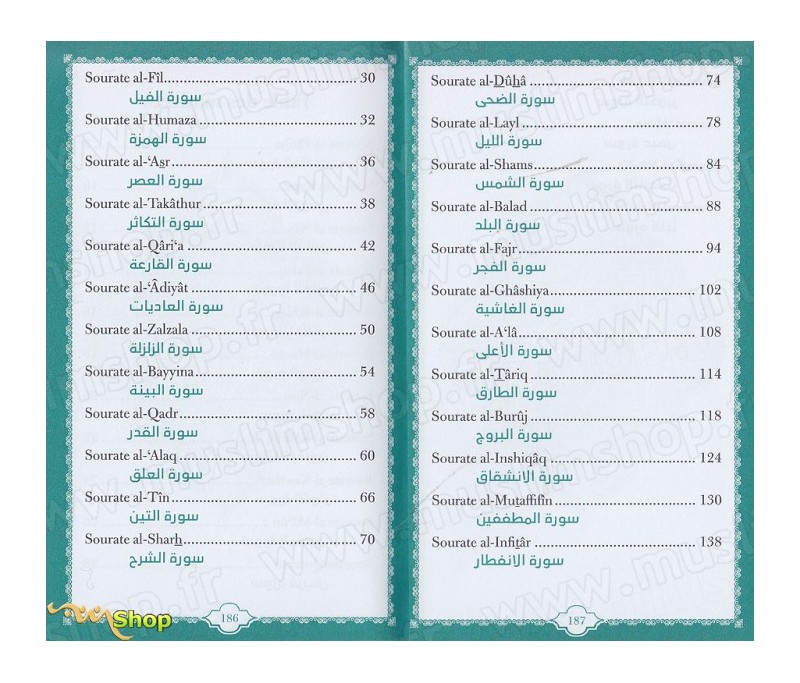 Sourate al-Fîl.................................................. 30
سورة الفيل
Sourate al-Humaza........................................ 32
سورة الهمزة
Sourate al-‘As̲r................................................ 36
سورة العصر
Sourate al-Takâthur........................................ 38
سورة التكاثر
Sourate al-Qâri‘a............................................ 42
سورة القارعة
Sourate al-‘Âdiyât........................................... 46
سورة العاديات
Sourate al-Zalzala........................................... 50
سورة الزلزلة
Sourate al-Bayyina.......................................... 54
سورة البينة
Sourate al-Qadr.............................................. 58
سورة القدر
Sourate al-‘Alaq.............................................. 60
سورة العلق
Sourate al-Tîn................................................. 66
سورة التين
Sourate al-Sharh̲............................................. 70
سورة الشرح
186
Sourate al-D̲ûh̲â............................................. 74
سورة الضحى
Sourate al-Layl............................................... 78
سورة الليل
Sourate al-Shams............................................ 84
سورة الشمس
Sourate al-Balad............................................. 88
سورة البلد
Sourate al-Fajr................................................ 94
سورة الفجر
Sourate al-Ghâshiya....................................... 102
سورة الغاشية
Sourate al-A‘lâ............................................... 108
سورة الأعلى
Sourate al-T̲âriq............................................. 114
سورة الطارق
Sourate al-Burûj............................................. 118
سورة البروج
Sourate al-Inshiqâq........................................ 124
سورة الانشقاق
Sourate al-Mut̲affifîn...................................... 130
سورة المطففين
Sourate al-Infit̲âr............................................ 138
سورة الانفطار
187
Shop
www.muslimshop.fr